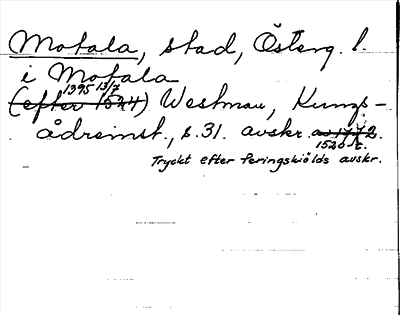 Motala, stad, Österg. l.
i Motala
1395 13/7
(efter 1524) Westman, Kungs-
ådreinst., s. 31. avskr. av 1772.
1520-t.
Tryckt efter Peringskiölds avskr.